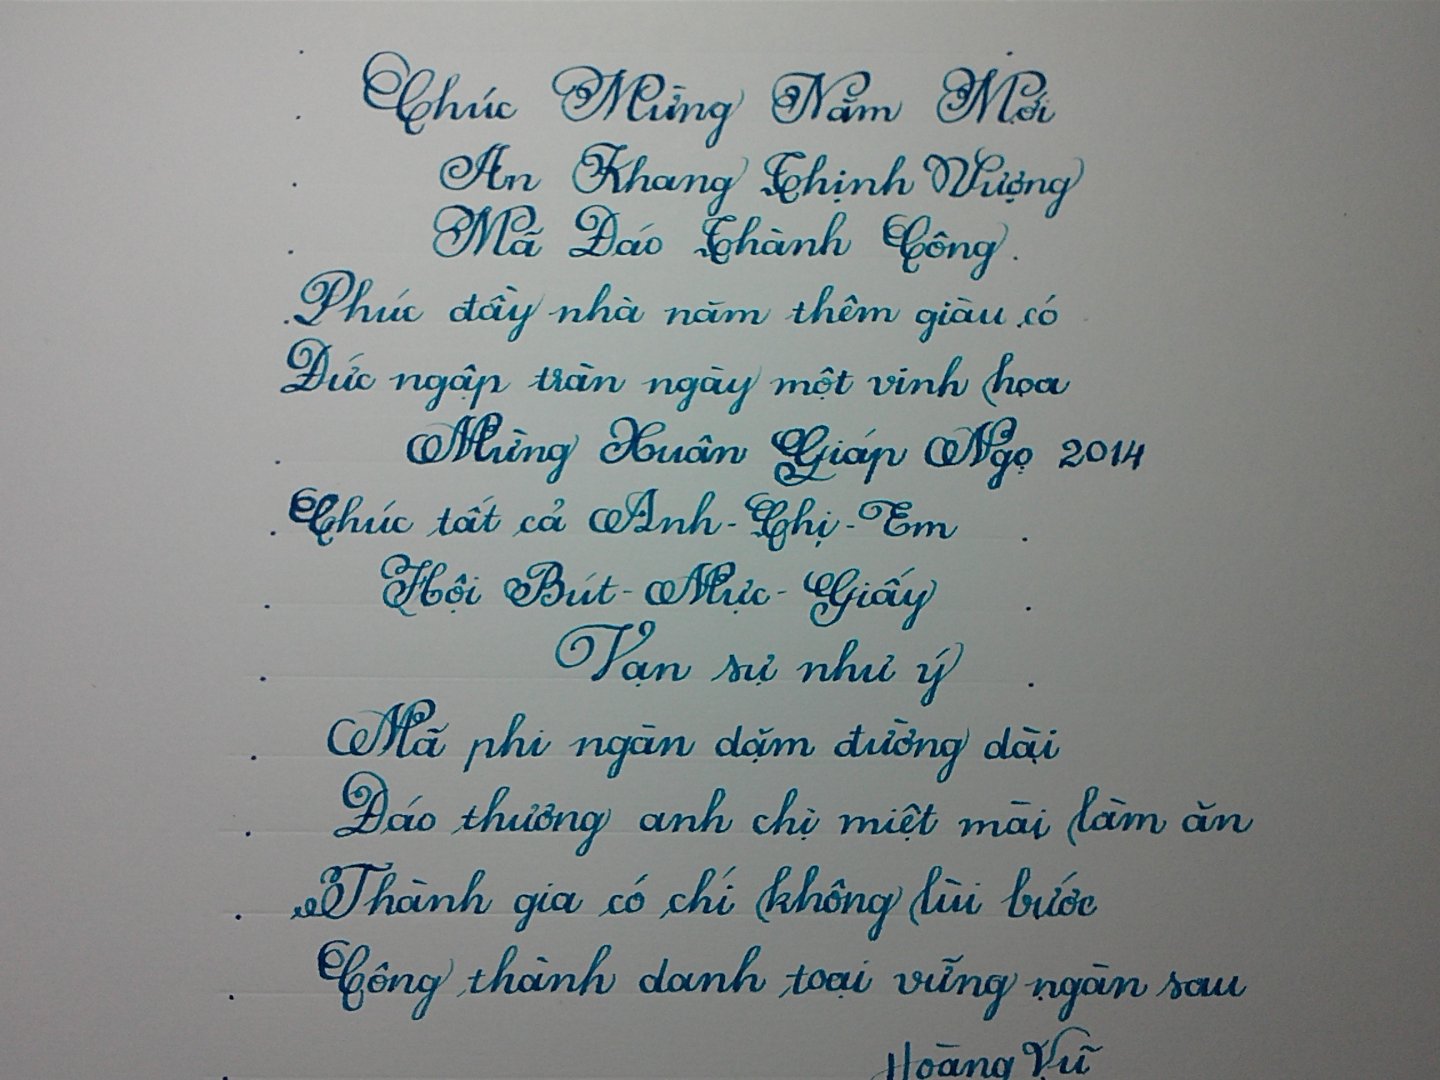 Chúc Mừng Năm Mới
An Khang Thịnh Vượng
Mã Đáo Thành Công.
Phúc đầy nhà năm thêm giàu có
Đức ngập tràn ngày một vinh hoa
Mừng Xuân Giáp Ngọ 2014
Chúc tất cả Anh-Chị-Em
Hội Bút-Mực-Giấy
Vạn sự như ý
Mã phi ngàn dặm đường dài
Đáo thương anh chị miệt mài làm ăn
Thành gia có chí không lùi bước
Công thành danh toại vững ngàn sau
Hoàng Vũ